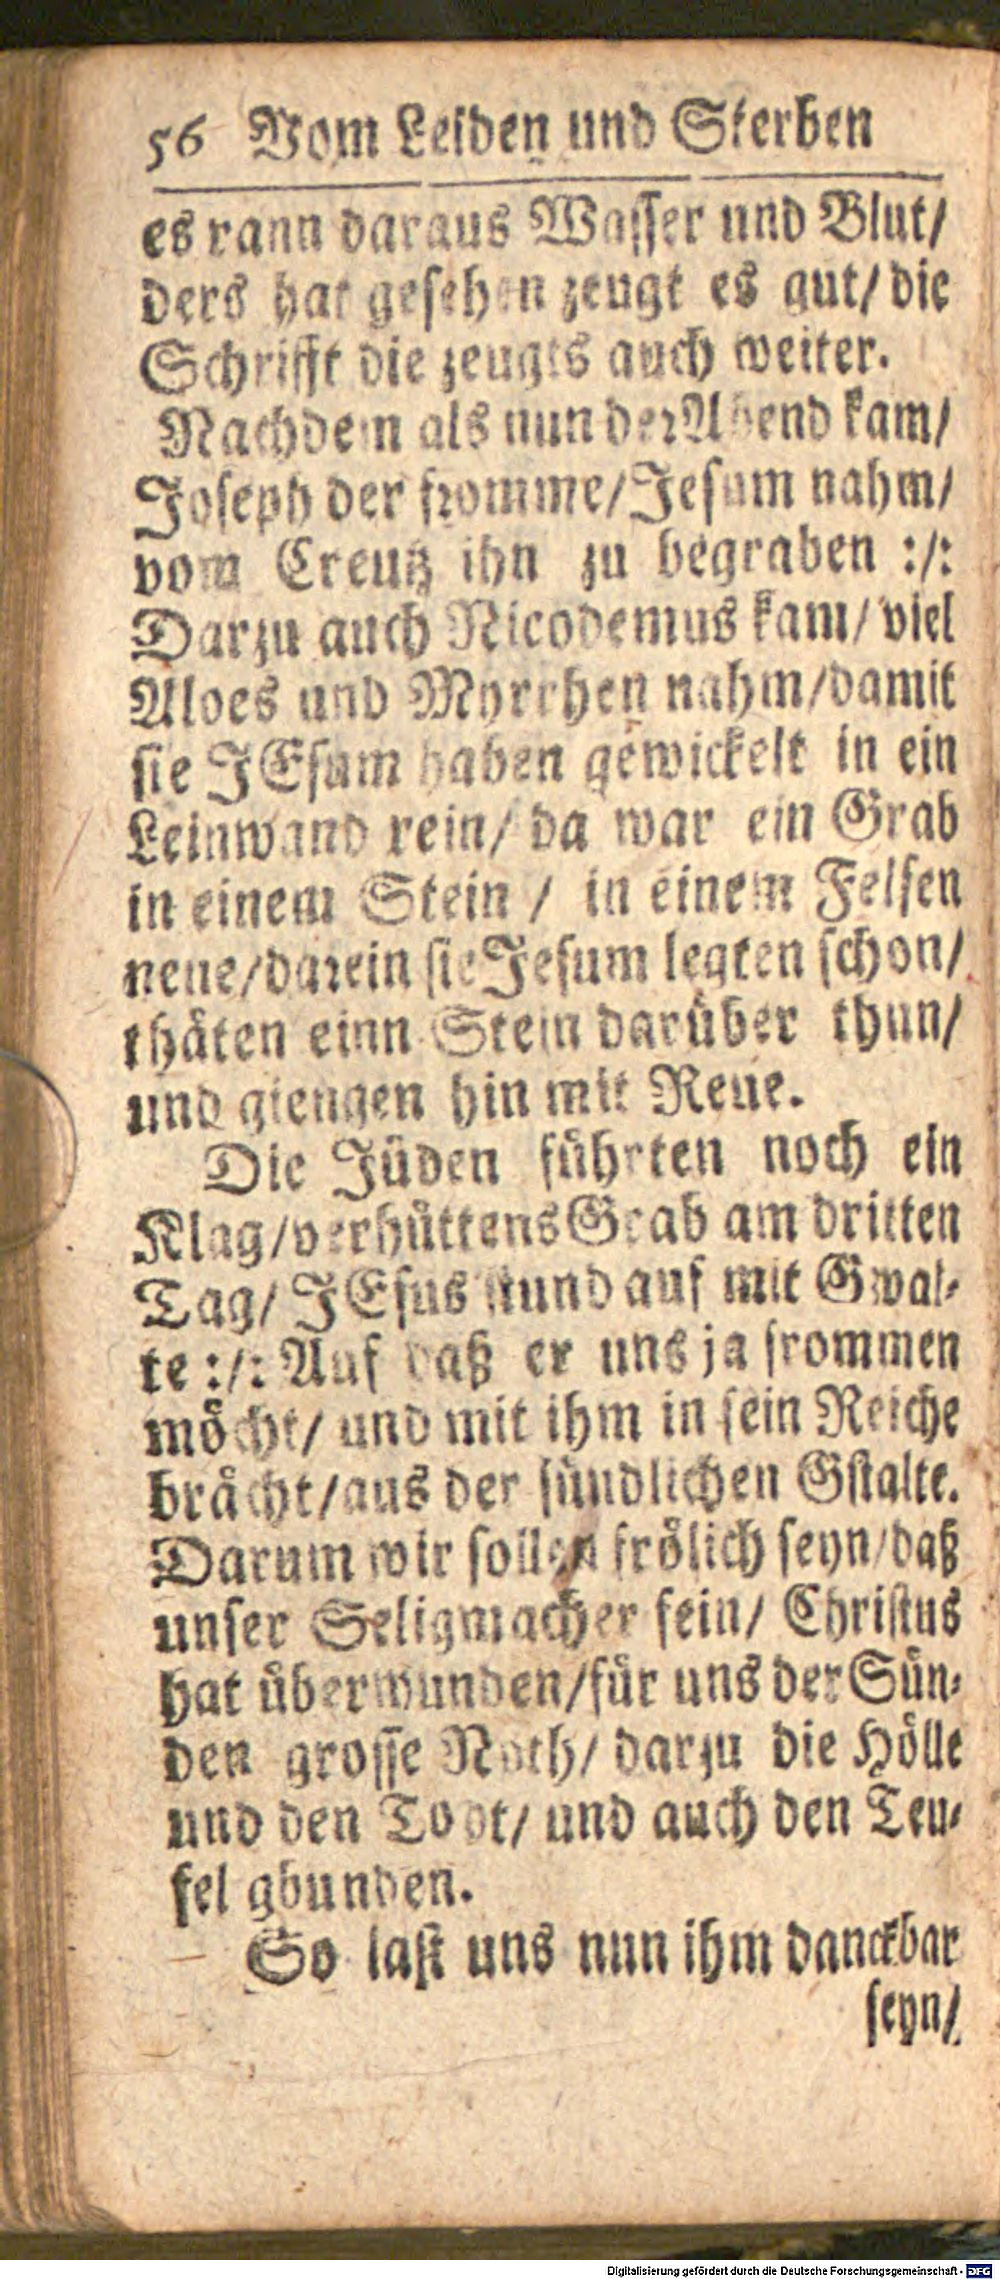 56 Vom Leiden und Sterben
es rann daraus Wasser und Blut/
ders hat gesehen zeugt es gut/ die
Schrifft die zeugts auch weiter.
Nachdem als nun der Abend kam/
Joseph der fromme/ Jesum nahm/
vom Creutz ihn zu begraben :/:
Darzu auch Nicodemus kam/ viel
Aloes und Myrrhen nahm/ damit
sie JEsum haben gewickelt in ein
Leinwand rein/ da war ein Grab
in einem Stein / in einem Felsen
neue/ darein sie Jesum legten schon/
thäten einn Stein darüber thun/
und giengen hin mit Reue.
Die Jüden führten noch ein
Klag/ verhüttens Grab am dritten
Tag/ JEsus stund auf mit Gwal-
te :/: Auf daß er uns ja frommen
möcht/ und mit ihm in sein Reiche
brächt/ aus der sündlichen Gstalte.
Darum wir sollen frölich seyn/ daß
unser Seligmacher fein/ Christus
hat überwunden/ für uns der Sün-
den grosse Noth/ darzu die Hölle
und den Todt/ und auch den Teu-
fel gbunden.
So last uns nun ihm danckbar
seyn/
Digitalisierung gefördert durch die Deutsche Forschungsgemeinschaft - DFG